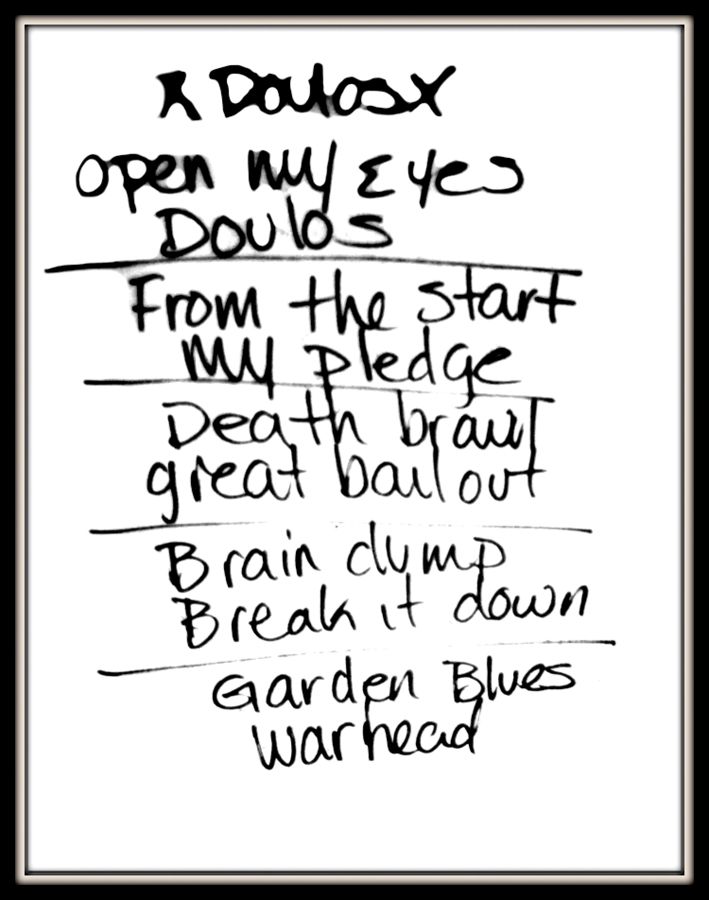 x Doulos x
open my Eyes
Doulos
From the start
my pledge
Death brawl
great bailout
Brain dump
Break it down
Garden Blues
warhead